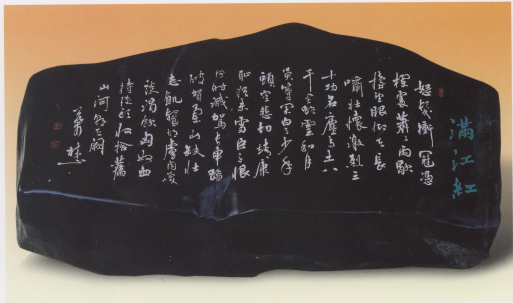 滿江紅
怒髮衝冠憑
欄處蕭蕭雨歇
擡望眼仰天長
嘯壯懷激烈三
十功名塵與土八
千里路雲和月
莫等閒白了少年
頭空悲切靖康
恥猶未雪臣子恨
何時滅駕長車踏
破賀蘭山缺壯
志飢餐胡虜肉笑
談渴飲匈奴血
待從頭收拾舊
山河朝天闕